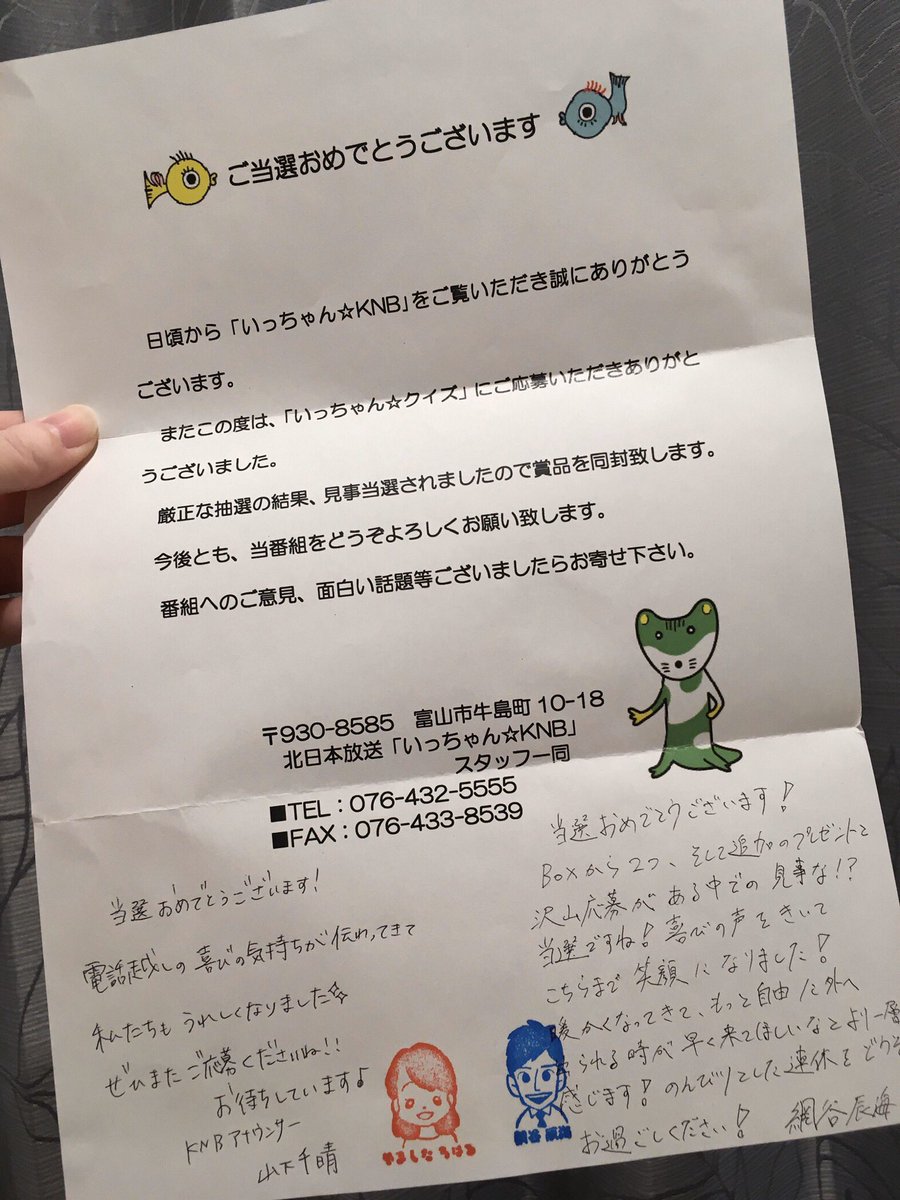 ご当選おめでとうございます
日頃から「いっちゃん☆KNB」をご覧いただき誠にありがとう
ございます。
またこの度は、「いっちゃん☆クイズ」にご応募いただきありがと
うございました。
厳正な抽選の結果、見事当選されましたので賞品を同封致します。
今後とも、当番組をどうぞよろしくお願い致します。
番組へのご意見、面白い話題等ございましたらお寄せ下さい。
〒930-8585 富山市牛島町10-18
北日本放送「いっちゃん☆KNB」
スタッフ一同
■TEL:076-432-5555
■FAX:076-433-8539
当選おめでとうございます!
電話越しの喜びの気持ちが伝わってきて
私たちもうれしくなりました☆
ぜひまたご応募くださいね!!
お待ちしています♪
KNBアナウンサー
山下千晴
やましたちはる
当選おめでとうございます!
Boxから2つ、そして追加のプレゼントと
沢山応募がある中での見事な!?
当選ですね!喜びの声をきいて
こちらまで笑顔になりました!
暖かくなってきて、もっと自由に外へ
出られる時が早く来てほしいなとより一層
感じます!のんびりとした連休をどうぞ
お過ごしください! 網谷辰海
網谷辰海